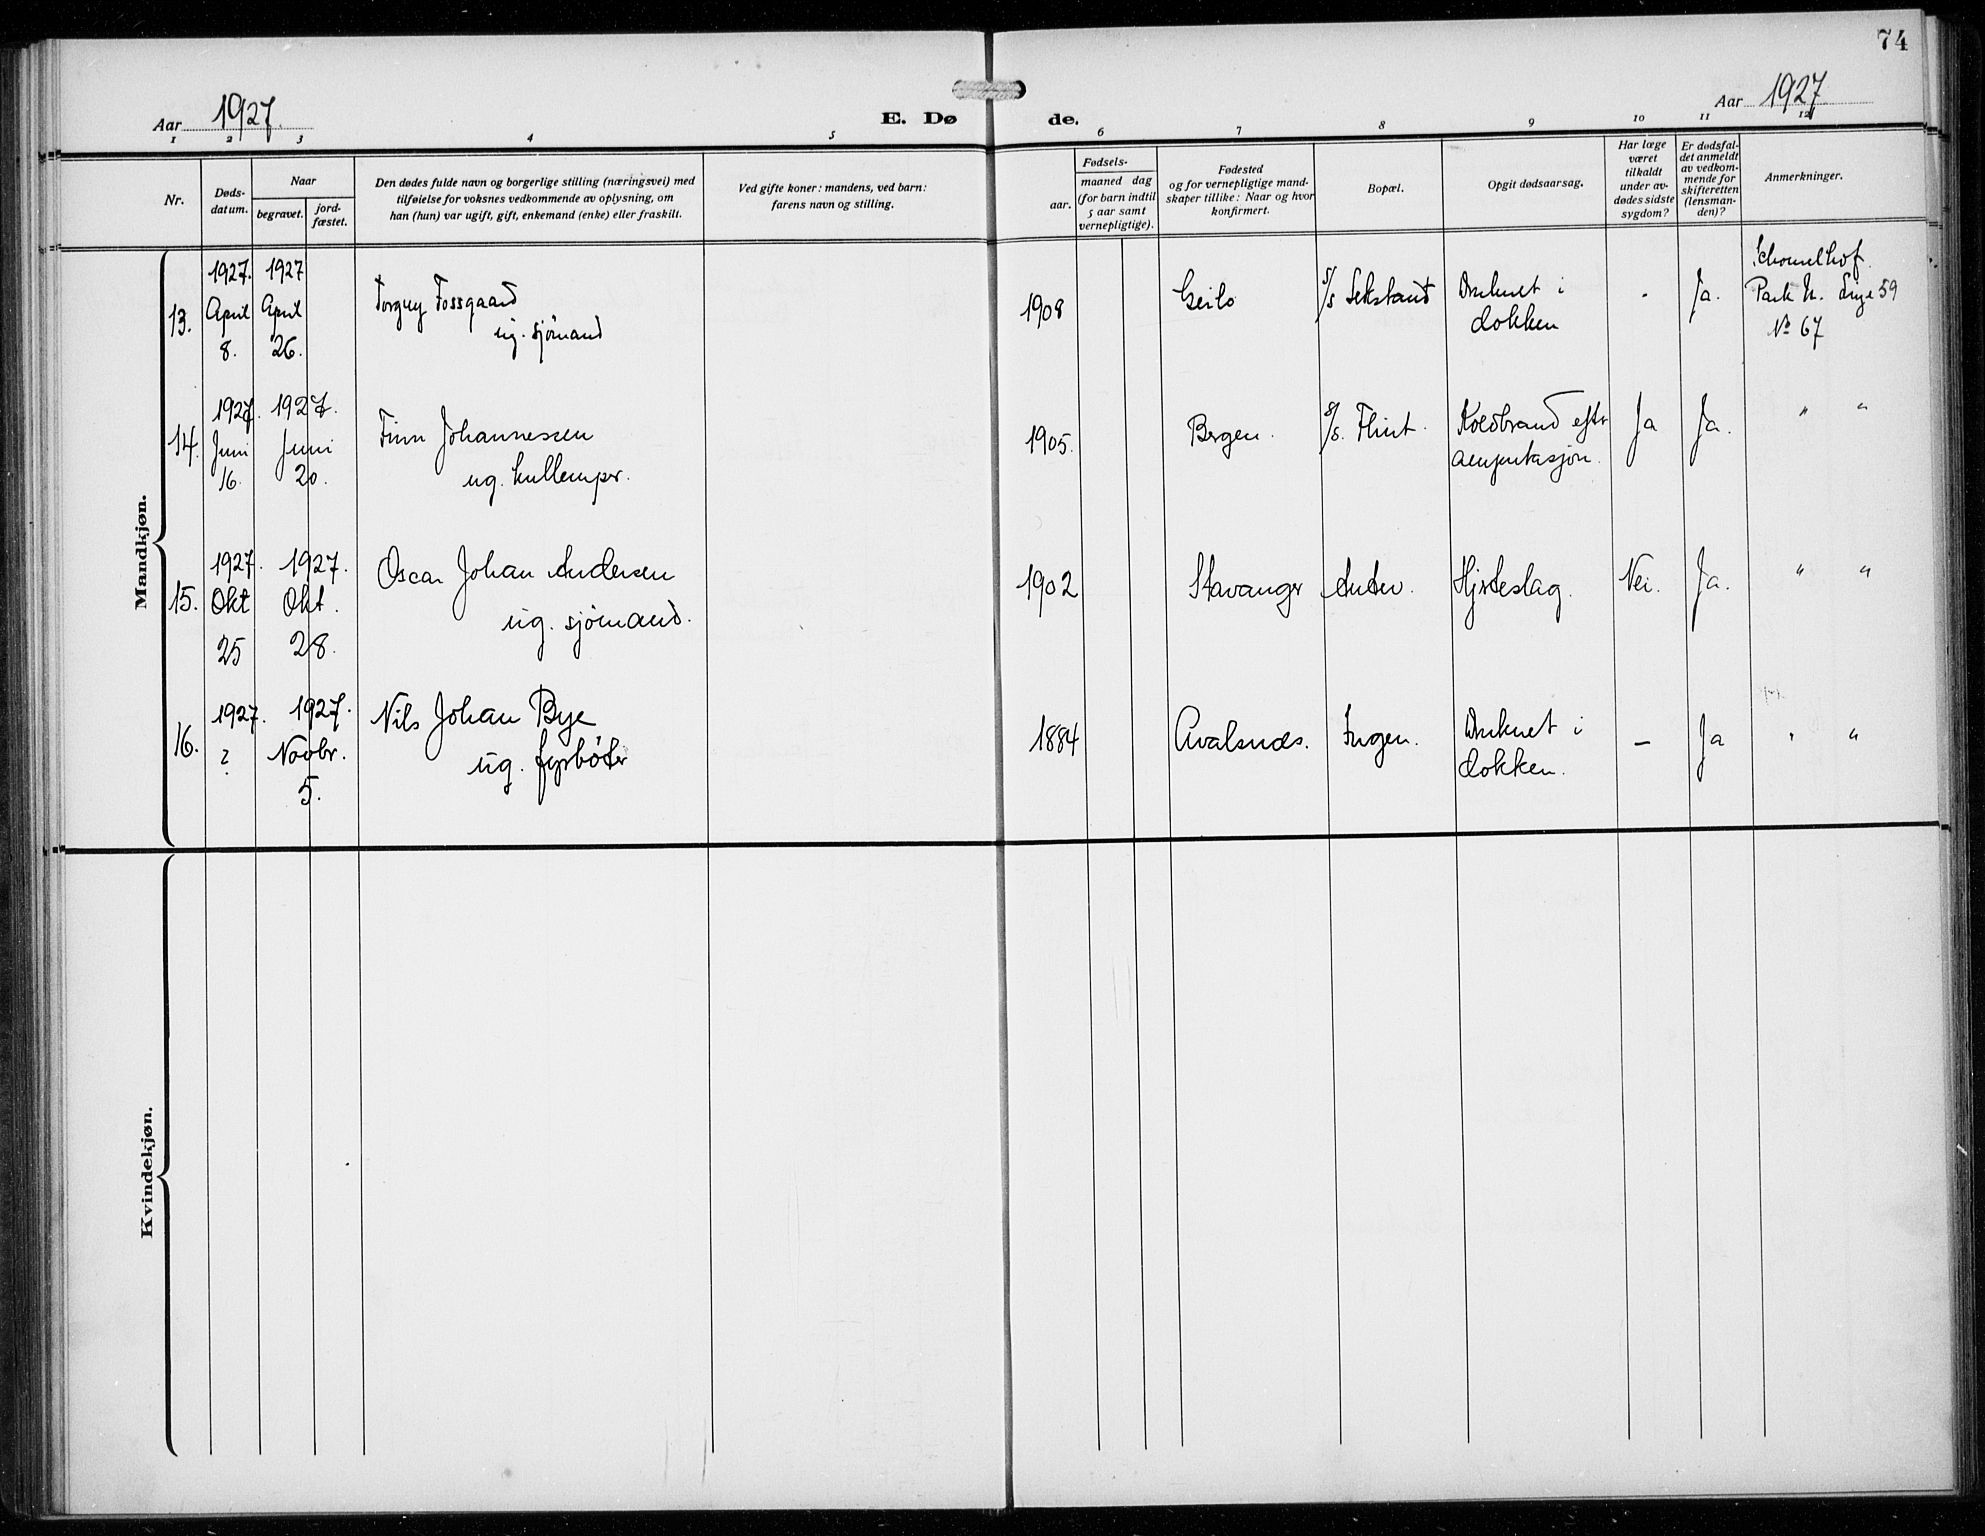 74
Aar 1927.
E. Døde.
Aar 1927
1 2 3 4 5 6 7 8 9 10 11 12
Nr.
Døds-
datum.
Naar
begravet.
jord-
fæstet.
Den dødes fulde navn og borgerlige stilling (næringsvei) med
tilføielse for voksnes vedkommende av oplysning, om
han (hun) var ugift, gift, enkemand (enke) eller fraskilt.
Ved gifte koner: mandens, ved barn:
farens navn og stilling.
Fødsels-
aar.
maaned dag
(for barn indtil
5 aar samt
vernepligtige).
Fødested
og for vernepligtige mand-
skaper tillike: Naar og hvor
konfirmert.
Bopæl.
Opgit dødsaarsag.
Har læge
været
tilkaldt
under av-
dødes sidste
sygdom?
Er dødsfal-
det anmeldt
av vedkom-
mende for
skifteretten
(lensman-
den)?
Anmerkninger.
Mandkjøn.
13.
1927.
April
8.
1927
April
26.
Torguy Fossgaard
ug. sjömand
1908
Geilo
s/s Sekstand
Druknet i
dokken
-
Ja.
Schoonselhof.
Park N. Linje 59
No 67
14.
1927.
Juni
16.
1927.
Juni
20.
Finn Johannessen
ug. kullemper.
1905.
Bergen.
s/s. Flint.
Koldbrand efter
amputasjon.
Ja
Ja.
" "
15.
1927.
Okt
25
1927.
Okt.
28.
Oscar Johan Andersen
ug. sjömand.
1902
Stavanger
Antw.
Hjerteslag.
Nei.
Ja.
" "
16.
1927.
?
1927.
Novbr.
5.
Nils Johan Bye
ug. fyrböter
1884
Avalsnes.
Ingen.
Druknet i
dokken.
-
Ja
" "
Kvindekjøn.